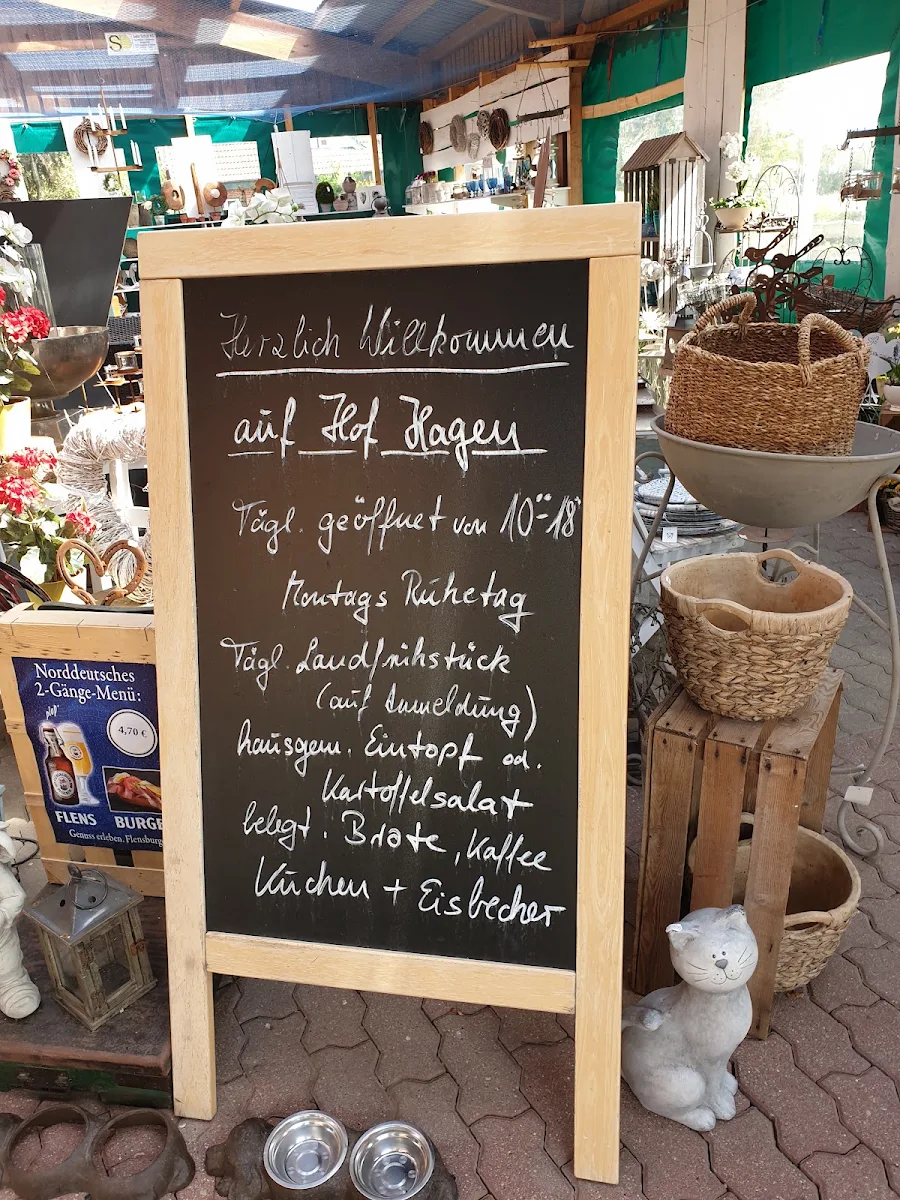 Herzlich Willkommen
auf Hof Hagen
Tägl. geöffnet von 10°°-18
Montags Ruhetag
Tägl. Landfrühstück
(auf Anmeldung)
hausgem. Eintopf od.
Kartoffelsalat
belegt. Brote, Kaffee
Kuchen + Eisbecher
Norddeutsches
2-Gänge-Menü:
plop'
4,70 €
FLENS BURGE
Genuss erleben. Flensburg